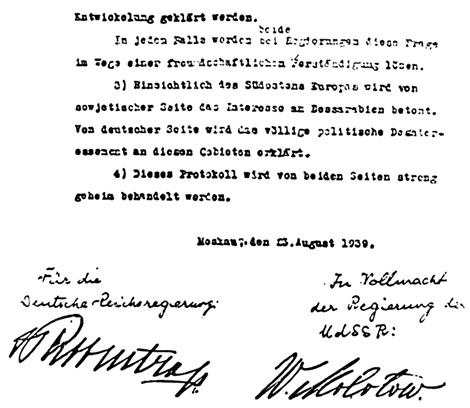 Entwickelung geklärt werden.
beide
In jedem Falle werden bei Regierungen diese Frage
im Wege einer freundschaftlichen Verständigung lösen.
3) Hinsichtlich des Südostens Europas wird von
sowjetischer Seite das Interesse an Bessarabien betont.
Von deutscher Seite wird das völlige politische Desinter-
essement an diesen Gebieten erklärt.
4) Dieses Protokoll wird von beiden Seiten streng
geheim behandelt werden.
Moskau, den 23. August 1939.
Für die
Deutsche Reichsregierung:
Ribbentrop
In Vollmacht
der Regierung der
UdSSR:
W. Molotow.